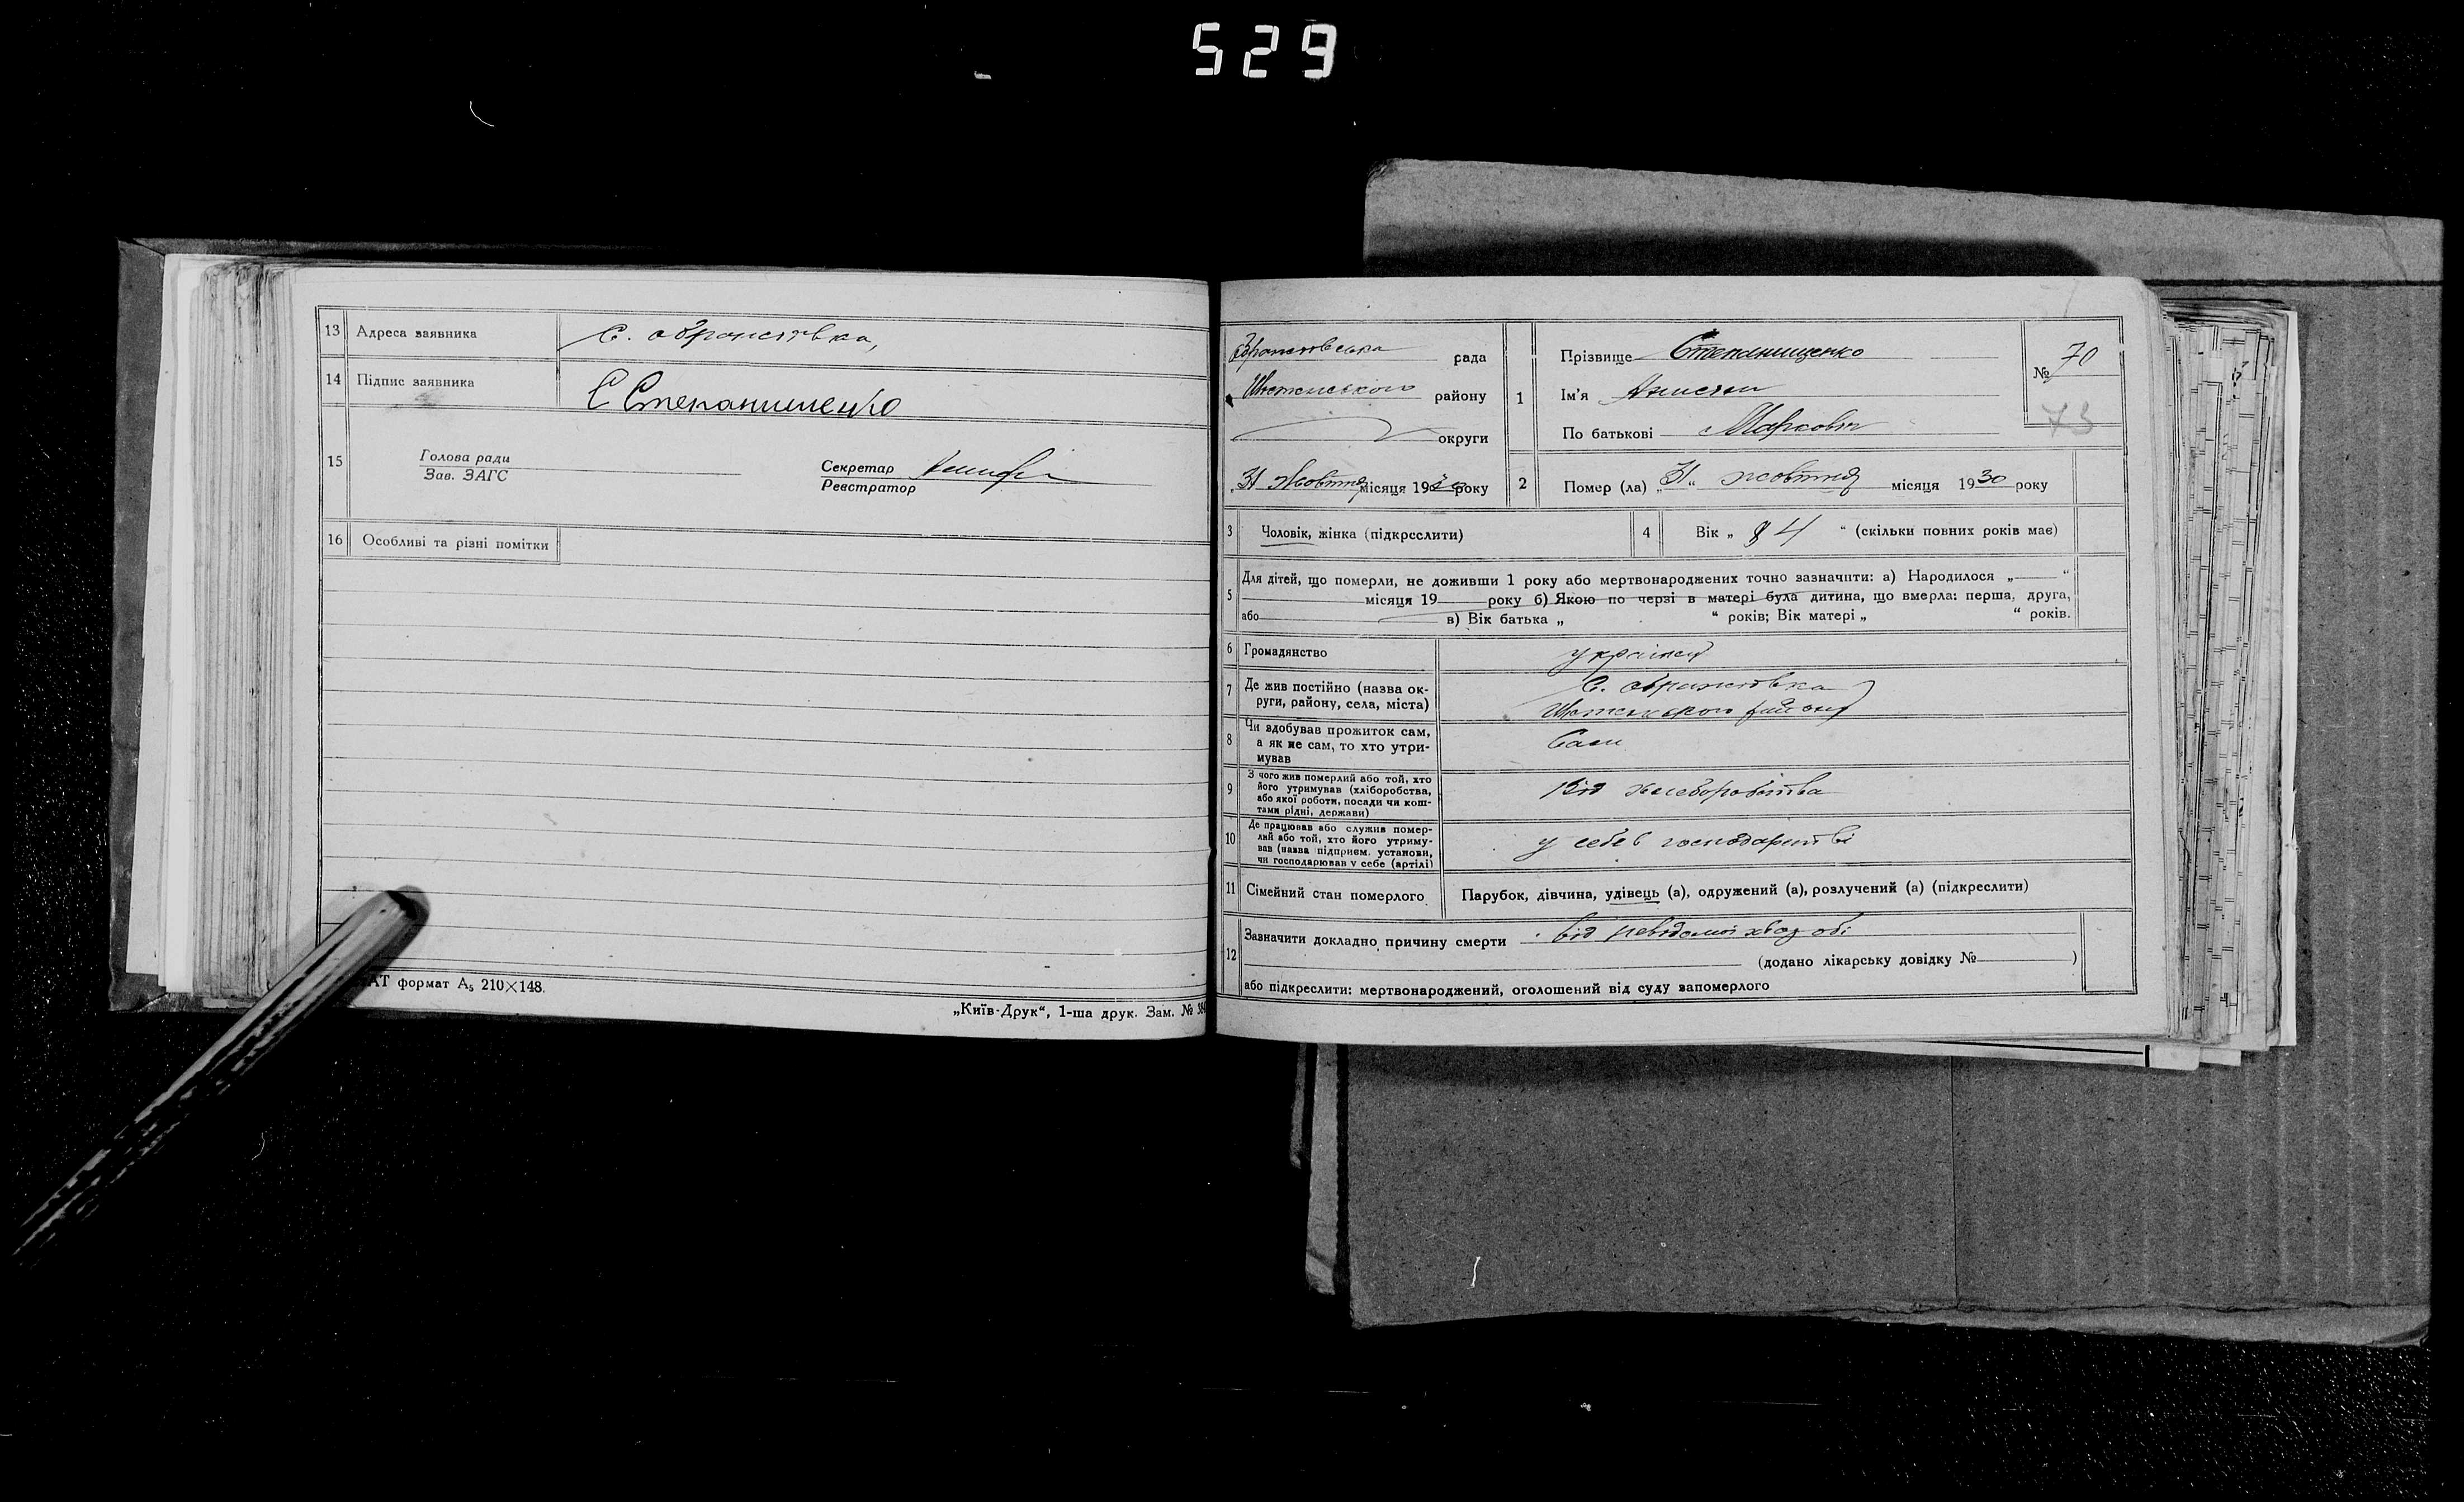 529
13 Адреса заявника
14 Підпис заявника С Степанишенко
15 Голова ради
Зав. ЗАГС
Секретар
Реєстратор
16 Особливі та різні помітки
АТ формат А5 210×148.
„Київ-Друк“, 1-ша друк. Зам. №
рада
району
округи
31 Жовтня місяця 1930 року
1 Прізвище Степанищенко
Ім'я
По батькові Маркович
№ 70
73
2 Помер (ла) „31“ жовтня місяця 1930 року
3 Чоловік, жінка (підкреслити)
4 Вік „84“ (скільки повних років має)
5 Для дітей, що померли, не доживши 1 року або мертвонароджених точно зазначити: а) Народилося „ “
місяця 19 року б) Якою по черзі в матері була дитина, що вмерла: перша, друга,
або в) Вік батька „ “ років; Вік матері „ “ років.
6 Громадянство українец
7 Де жив постійно (назва ок-
руги, району, села, міста)
С.
району
8 Чи здобував прожиток сам,
а як не сам, то хто утри-
мував
Сам
9 З чого жив померлий або той, хто
його утримував (хліборобства,
або якої роботи, посади чи кош-
тами рідні, держави)
Від хлеборобства
10 Де працював або служив помер-
лий або той, хто його утриму-
вав (назва підприєм. установи,
чи господарював у себе (артілі)
у себе в господарстві
11 Сімейний стан померлого Парубок, дівчина, удівець (а), одружений (а), розлучений (а) (підкреслити)
12 Зазначити докладно причину смерти від невідомої хвороби
(додано лікарську довідку № )
або підкреслити: мертвонароджений, оголошений від суду запомерлого